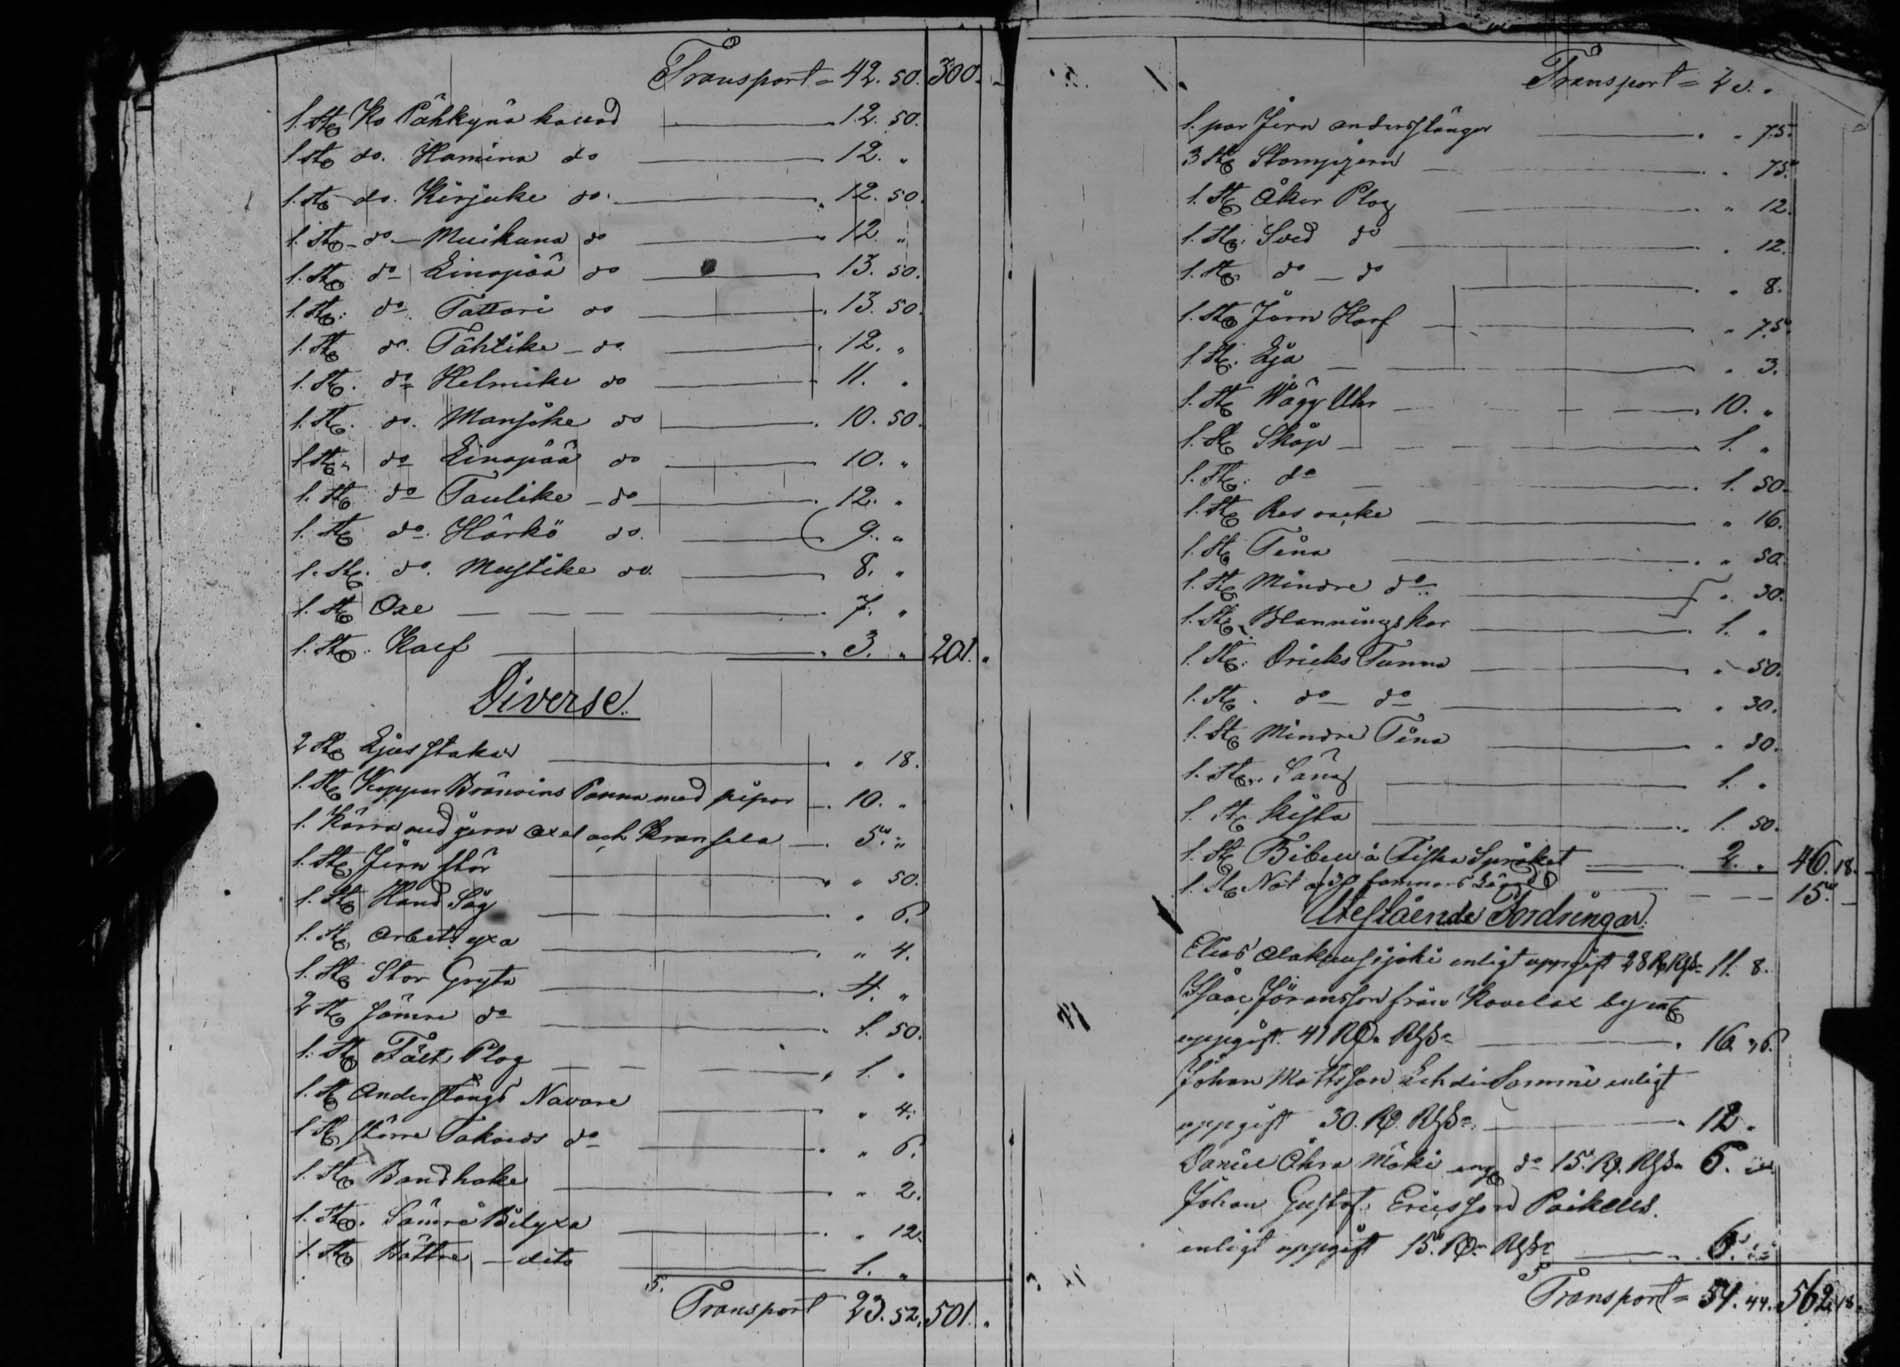 Transport = 42. 50. 300. -
1. St. Ko Pähkynä kallad 12. 50.
1 St. do. Hamina do 12. "
1. St. do. Kirjuke do. 12. 50.
1. St. - do - Muikuna do 12. "
1. St. do - Linapää do 13. 50.
1. St. do Tattari do 13. 50.
1. St. do. Tähtike - do. 12. "
1. St. do Helmike do 11. "
1. St. do. Mansike do 10. 50.
1 St. do Linapää do 10. "
1. St. do - Taulike - do 12. "
1. St. do. Härkö do. 9. "
1. St. do. Mustike do. 8. "
1. St. Oxe 7. "
1. St. Kalf 3. " 201. "
Diverse.
2 St. Ljusstakar " 18.
1. St. Koppar Bränvins Panna med pipor 10. "
1. Kärra med jern axel och 5. "
1. St. Jern stör " 50.
1. St. Hand Såg " 6.
1. St. Arbets yxa " 4.
1. St. Stor Gryta 4. "
2 St. Sämre do 1. 50.
1. St. Fält Plog 1. "
1. St. Anderstångs Navare " 4.
1 St. större do - " 6.
1. St. Bandhake " 2.
1. St. Sämre Bilyxa " 12.
1. St. Bättre - dito 1. "
5. Transport 23. 52. 501. "
Transport =
1. par Jern anderstänger " 75.
3 St. Stampjern " 75.
1. St. Åker Plog " 12.
1. St. Sved do " 12.
1. St. do - do " 8.
1. St. Järn Harf " 75.
1. St. Lja " 3.
1. St. Vägg Uhr 10. "
1. St. Skåp 1. "
1. St. do 1. 50.
1. St. Res " 16.
1. St. Tina " 50.
1. St. Mindre do " 30.
1. St. Blanningskar 1. "
1. St. Dricks Tunna " 50.
1. St. do - do " 30.
1. St. Mindre Tina " 30.
1. St. Säng 1. "
1. St. Kista 1. 50.
1. St. Bibel å Finska Språket 2. " 46. 18.
1. St. Not famnars 15. -
Utestående Fordringar.
Elias enligt uppgift 28 R. Rgs = 11. 8.
Isaac Göransson från Kovelax by enl.
uppgift 41 RD. Rgs = 16.
Johan Mattsson Lehdin Sammi enligt
uppgift 30. RD. Rgs = 12. "
Daniel Ahra Mäki enl. do 15. RD. Rgs = 6.
Johan Gustaf Ericsson Paikells.
enligt uppgift 15. RD. Rgs = 6.
5 Transport = 51. 44. 562. 18.